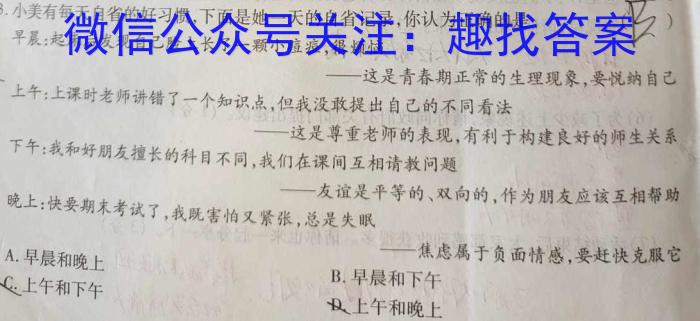 3.小美有每天自省的好习惯,下面是她一天的自省记录,你认为正确的是
微信公众号关注:趣找答案
早晨:起床 发现自己脸上长了 颗小痘痘
——这是青春期正常的生理现象,要悦纳自己
上午:上课时老师讲错了一个知识点,但我没敢提出自己的不同看法
——这是尊重老师的表现,有利于构建良好的师生关系
下午:我和好朋友擅长的科目不同,我们在课间互相请教问题
——友谊是平等的、双向的,作为朋友应该互相帮助
晚上:快要期末考试了,我既害怕又紧张,总是失眠
——焦虑属于负面情感,要赶快克服它
A.早晨和晚上
B.早晨和下午
C.上午和下午
D.上午和晚上